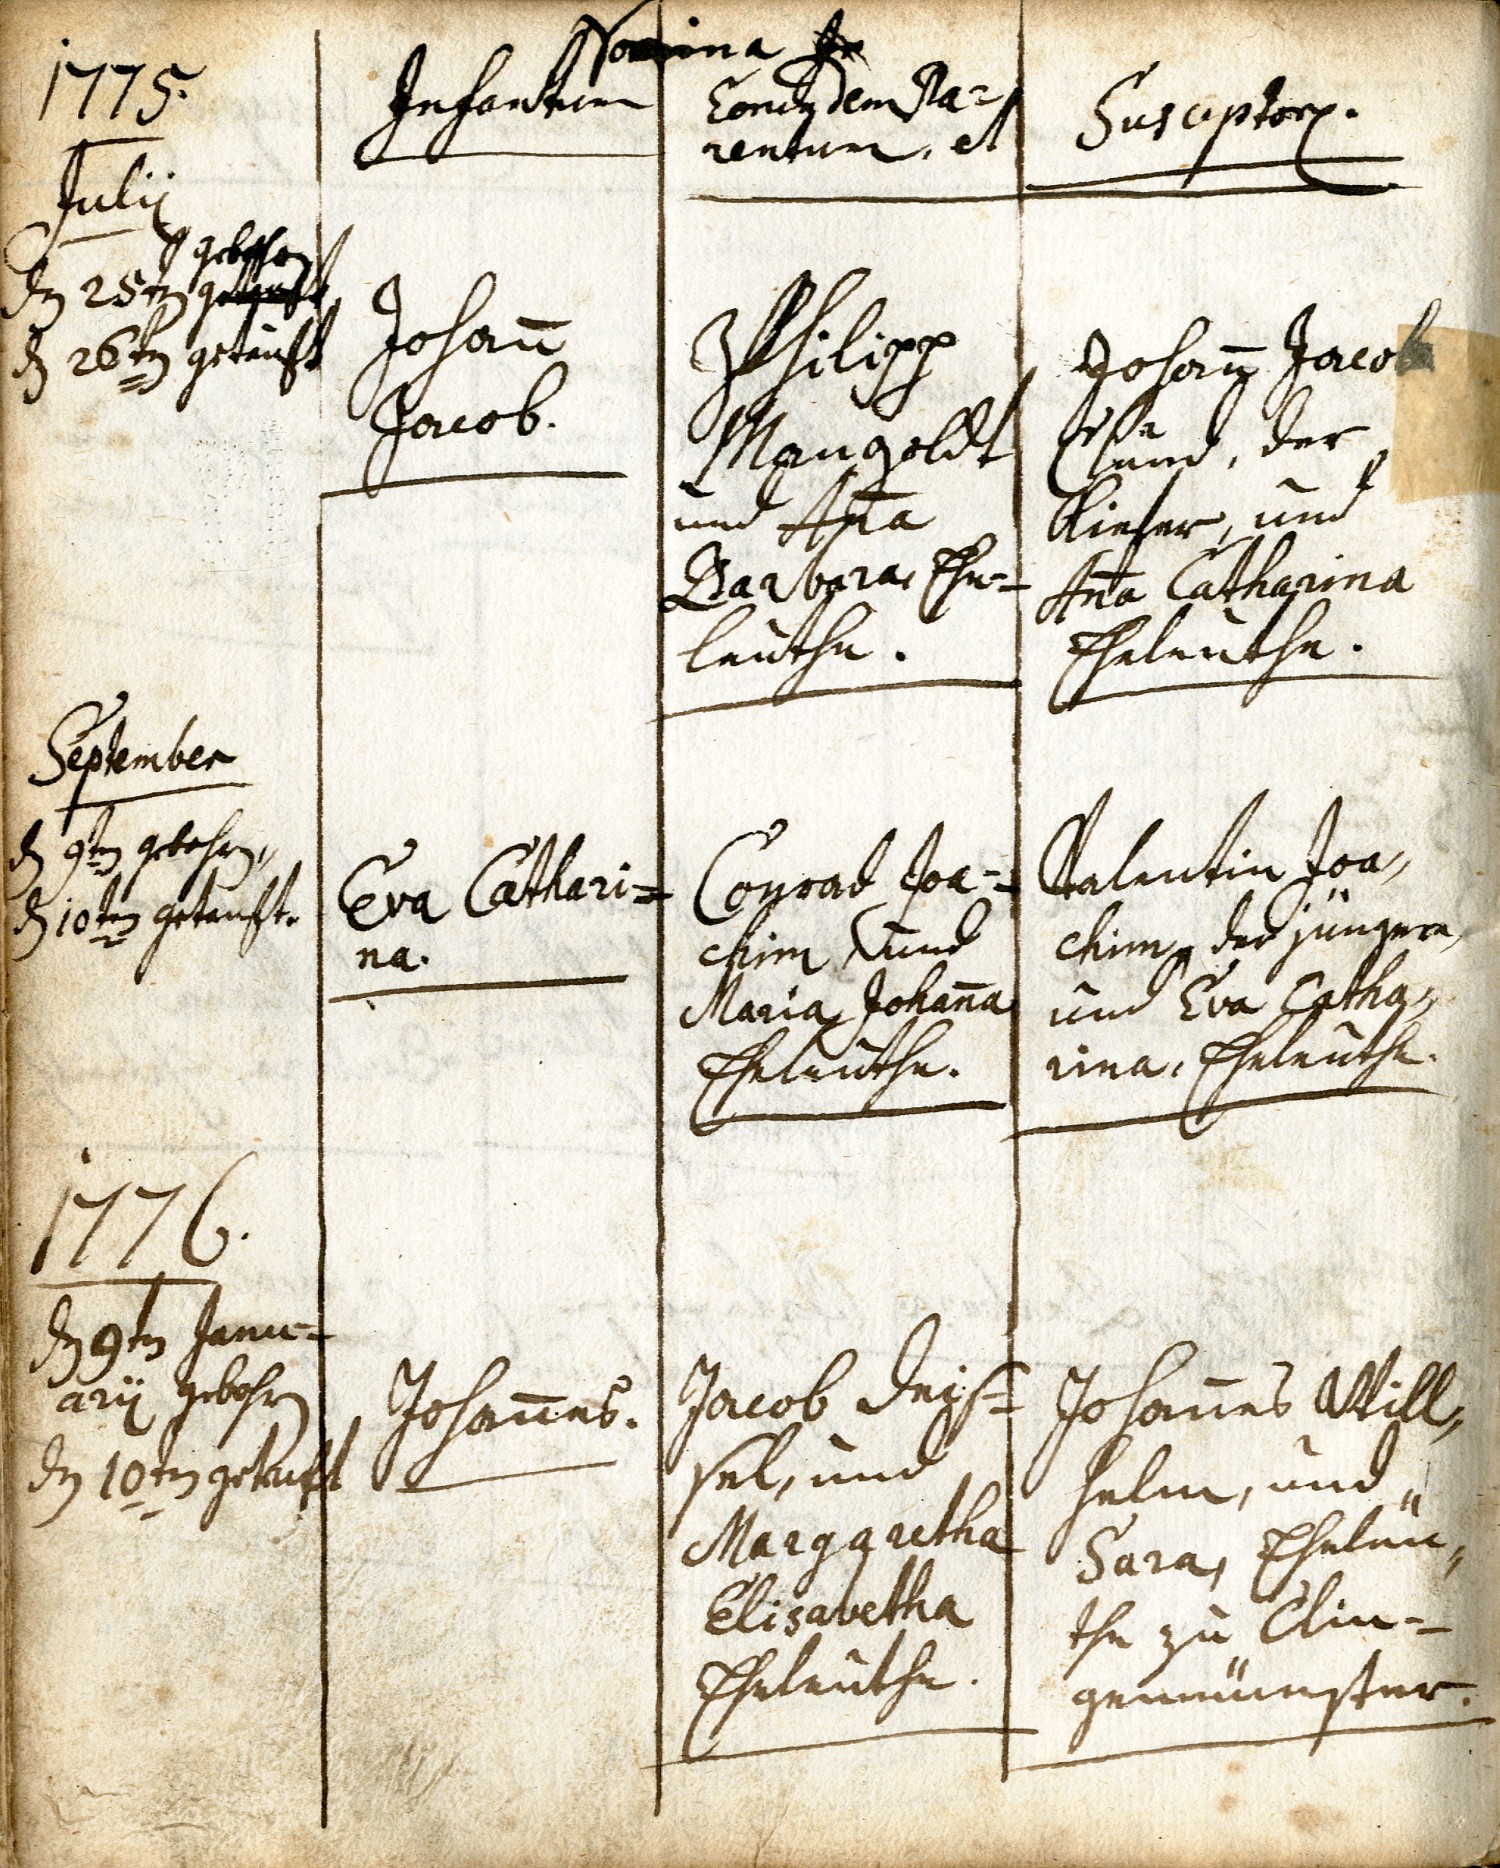 1775.
Nomina
Infantum
Eorundem Pa-
rentum, et
Susceptor.
Julij
gebohrn
dn 25tn
dn 26tn getaufft
Johann
Jacob.
Philipp
Mangoldt
und Anna
Barbara, Ehe-
leuthe.
Johann Jacob
der
Kiefer, und
Anna Catharina
Eheleuthe.
September
dn 9tn gebohrn,
dn 10ten getaufft.
Eva Cathari=
na.
Conrad Joa-
chim und
Maria Johanna
Eheleuthe.
Valentin Joa,
chim, der jüngere,
und Eva Catha,
rina, Eheleuthe.
1776.
dn 9tn Janu-
arij gebohrn
dn 10tn getaufft
Johannes.
Jacob
und
Margaretha
Elisavetha
Eheleuthe.
Johannes Will,
helm, und
Sara, Eheleu,
the zu Clin-
genmünster.